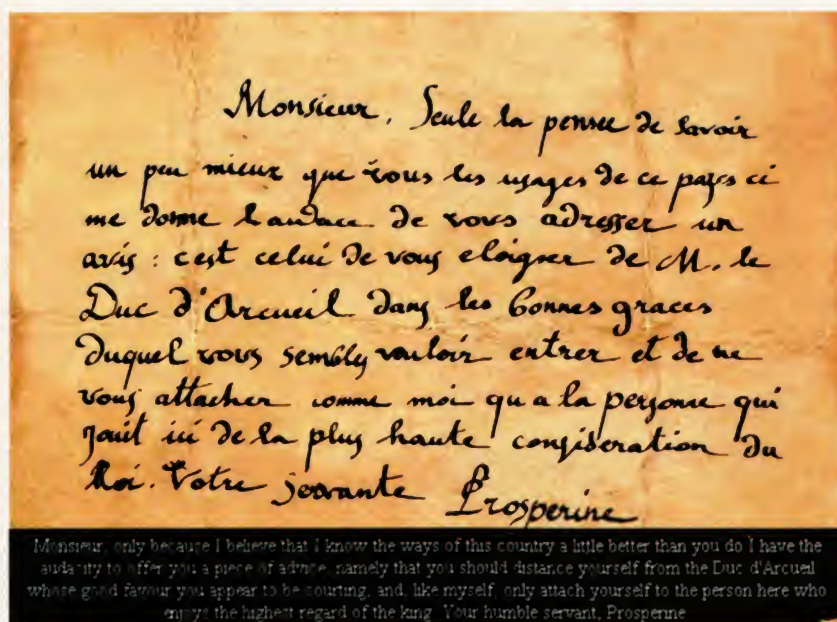 Monsieur, Seule la pensee de savoir
un peu mieux que vous les usages de ce pays ci
me donne l'audace de vous adresser un
avis : c'est celui de vous eloigner de M. le
Duc d'Arcueil dans les bonnes graces
duquel vous semblez vouloir entrer et de ne
vous attacher comme moi qu a la personne qui
jouit ici de la plus haute consideration du
Roi. Votre servante Prosperine
Monsieur, only because I believe that I know the ways of this country a little better than you do I have the
audacity to offer you a piece of advice, namely that you should distance yourself from the Duc d'Arcueil
whose good favour you appear to be courting, and, like myself, only attach yourself to the person here who
enjoys the highest regard of the king. Your humble servant, Prosperine